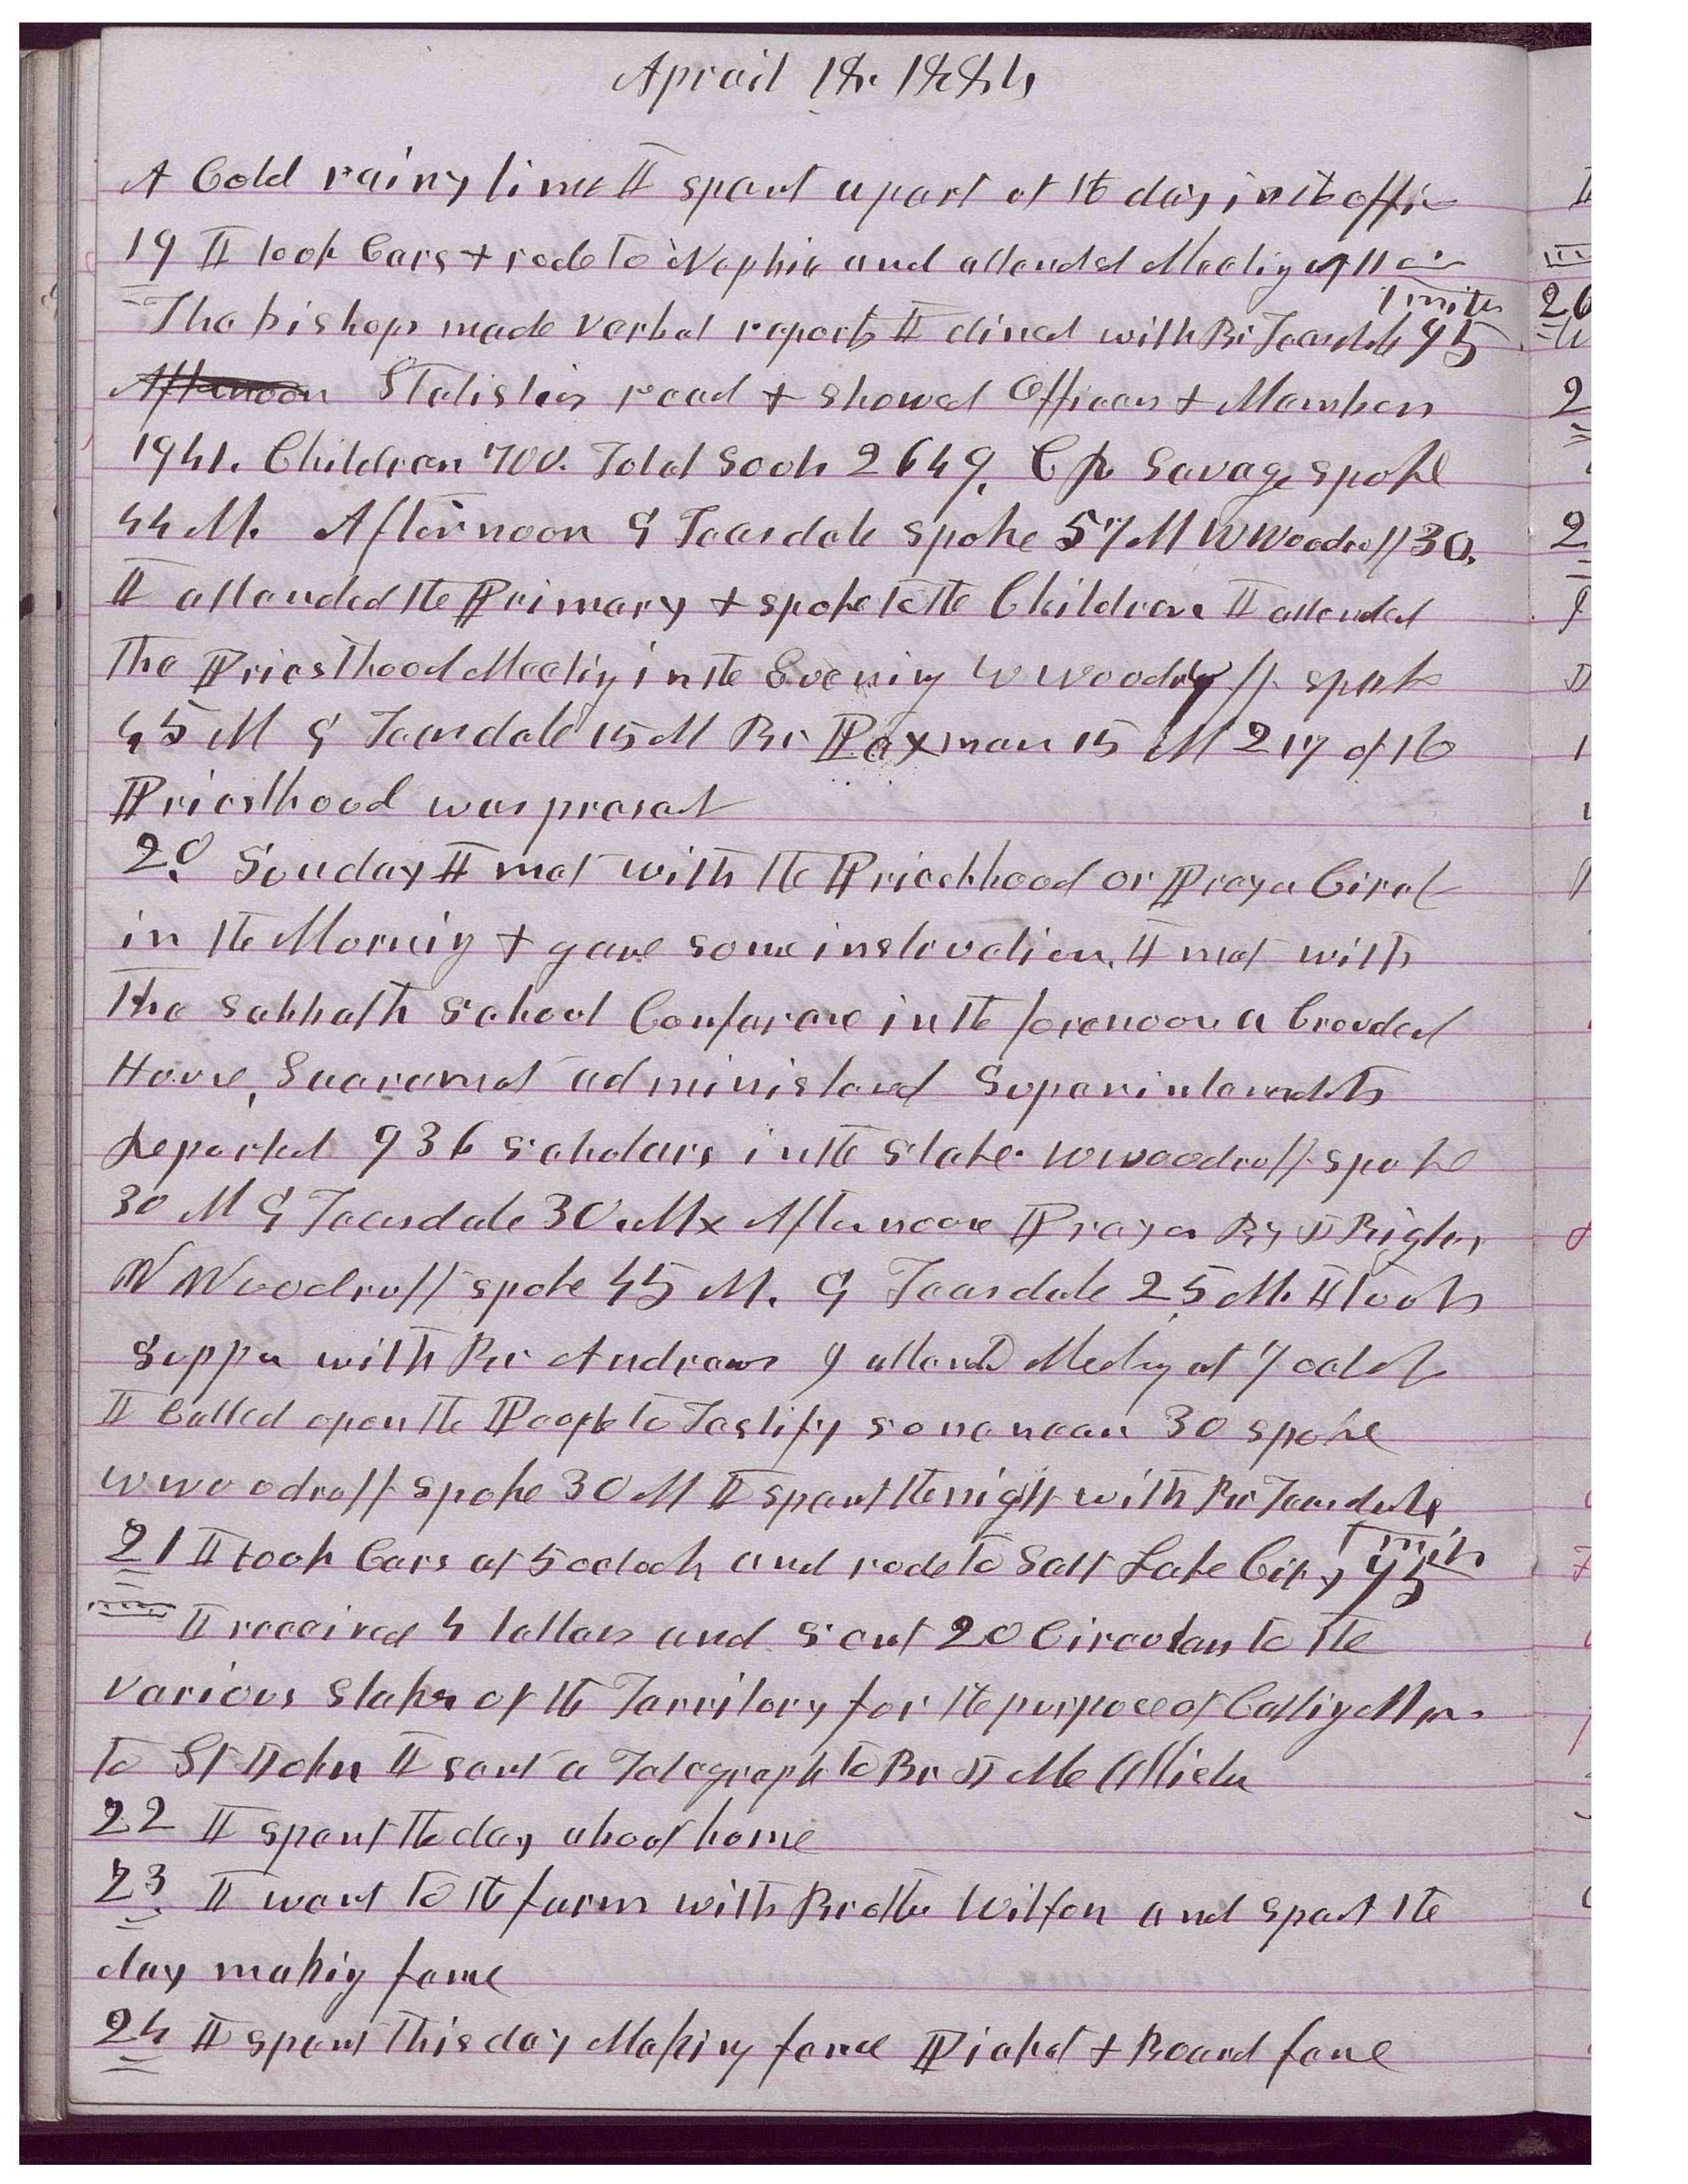 Aprail 18. 1884
A Cold rainy time I spent a part of the day in the office
19 I took Cars & rode to Nephi and attended Meeting at 11 oc
The bishops made verbal reports I dined with Br Teasdale 95 miles
Afternoon Statistics read & showed Officers & Members
1941. Children 708. Total Souls 2649. C R Savage spoke
44 M. Afternoon G Teasdale spoke 57 M W Woodruff 30.
I attended the Primary & spoke to the Children I attended
The Priesthood Meeting in the Evening W Woodruff spoke
45 M G Teasdale 15 M Br Paxman 15 M 217 of the
Priesthood was present
20 Sunday I met with the Priesthood or Prayer Circle
in the Morning & gave some instruction. I met with
The Sabbath School Conference in the forenoon a Crouded
House, Sacrament administered Superintendets
Reported 936 scholars in the stake. W Woodruff spoke
30 M G Teasdale 30 M x Afternoon Prayer By Bigler
W Woodruff spoke 45 M. G Teasdale 25 M. I took
Supper with Br Andrews & attend Meeting at 7 oclok
I Called upon the People to Testify some near 30 spoke
W Woodruff spoke 30 M I spent the night with Br Teasdale
21 I took Cars at 5 oclock and rode to Salt Lake City 95 miles
I received 4 letters and sent 20 Circulars to the
various Stakes of the Territory for the purpose of Calling Men
to St John I sent a Telegraph to Br J McAllister
22 I spent the day about home
23. I went to the farm with Brother Wilson and spent the
day making fence
24 I spent this day Making fence Picket & Board fence